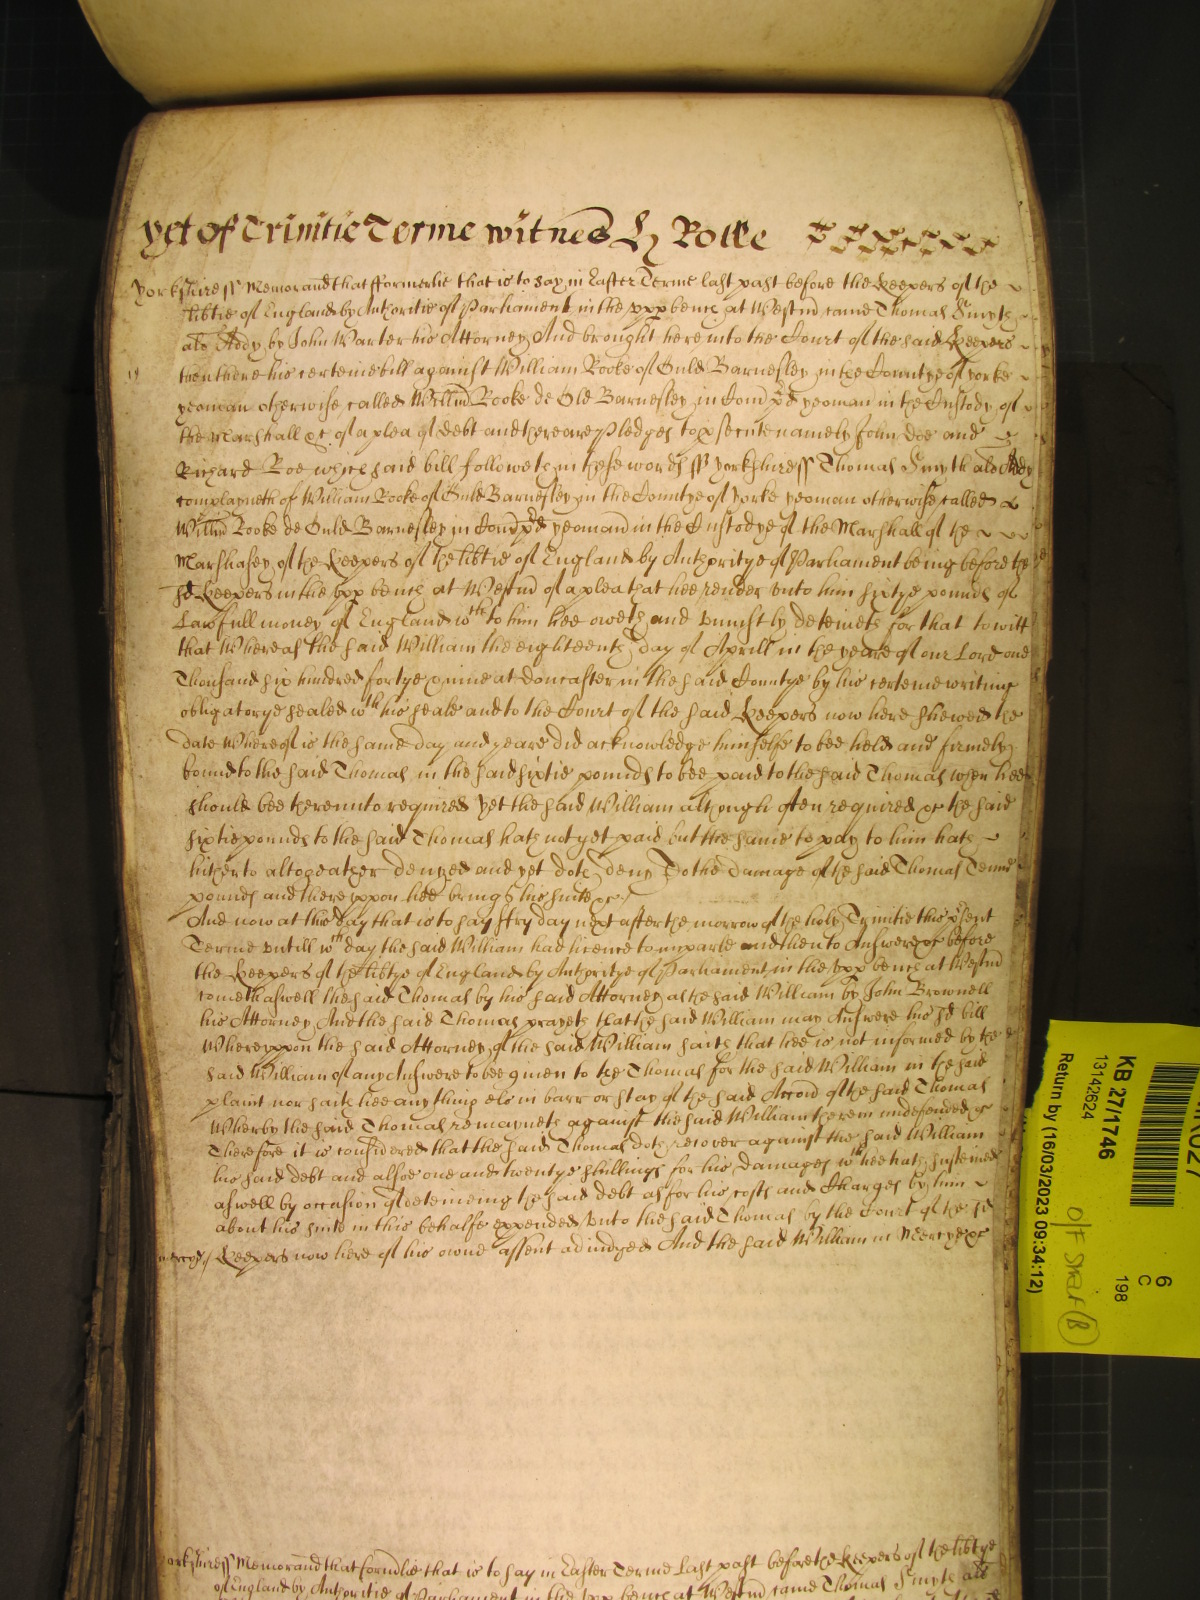 yet of Trinitie Terme witnes H Rolle
Yorkshire ss Memorand that fformerlie that is to say in Easter Terme last past before the Keepers of the
libtie of England by Authoritie of Parliament in the vpp bench at Westmd came Thomas Smyth
als Addy by John Warter his Attorney And brought here into the Court of the said Keepers
then there his certeine bill against William Rooke of Ould Barnesley in the Countye of yorke
yeoman otherwise called Willm Rooke de Old Barnesley in Com pd yeoman in the Custody of
the Marshall &c of a plea of debt and there are Pledges to psecute namely John Doe and
Richard Roe which said bill followeth in these words ss Yorkshire ss Thomas Smyth als Addy
complayneth of William Rooke of Ould Barnesley in the Countye of Yorke yeoman otherwise called
Willm Rooke de Ould Barnesley in Com pd yeoman in the Custodye of the Marshall of the
Marshalsey of the Keepers of the libtie of England by Authoritye of Parliament being before the
sd Keepers in the vpp bench at Westmd of a plea that hee render vnto him sixtye pounds of
Lawfull money of England wch to him hee oweth and vniustly deteineth for that to witt
that Whereas the said William the eighteenth day of Aprill in the yeare of our Lord one
Thousand six hundred fortye & nine at Doncaster in the said Countye by his certeine writing
obligatorye sealed wth his seale and to the Court of the said Keepers now here shewed the
date Whereof is the same day and yeare did acknowledge himselfe to bee held and firmely
bound to the said Thomas in the said sixtie pounds to bee paid to the said Thomas when hee
should bee therevnto required Yet the said William although often required &c the said
sixtie pounds to the said Thomas hath not yet paid but the same to pay to him hath
hitherto altogeather denyed and yet doth deny To the damage of the said Thomas Tenne
pounds and therevppon hee brings his suite &c
And now at this day that is to say ffryday next after the morrow of the holy Trinitie this psent
Terme vntill wch day the said William had licence to imparle and then to Answere &c before
the Keepers of the libtye of England by Authoritye of Parliament in the vpp bench at Westmd
cometh aswell the said Thomas by his said Attorney as the said William by John Brownell
his Attorney And the said Thomas prayeth that the said William may Answere his sd bill
Wherevppon the said Attorney of the said William saith that hee is not informed by the
said William of any Answere to bee given to the Thomas for the said William in the said
plaint nor saith hee any thing els in barr or stay of the said Accon of the said Thomas
Wherby the said Thomas remayneth against the said William therein vndefended &c
Therefore it is considered that the said Thomas doth recover against the said William
his said debt and alsoe one and twentye shillings for his damages wch hee hath susteined
aswell by occasion of deteineing the said debt as for his costs and Charges by him
about his suite in this behalfe expended vnto the said Thomas by the Court of the sd
Keepers now here of his owne assent adiudged And the said William in Mercye &c
Yorkshire ss Memorand that formlie that is to say in Easter Terme last past before the Keepers of the libtye
of England by Authoritie of Parliament in the vpp bench at Westmd came Thomas Smyth als
KB 27/1746
13142624
Return by (16/03/2023 09:34:12)
6
C
198